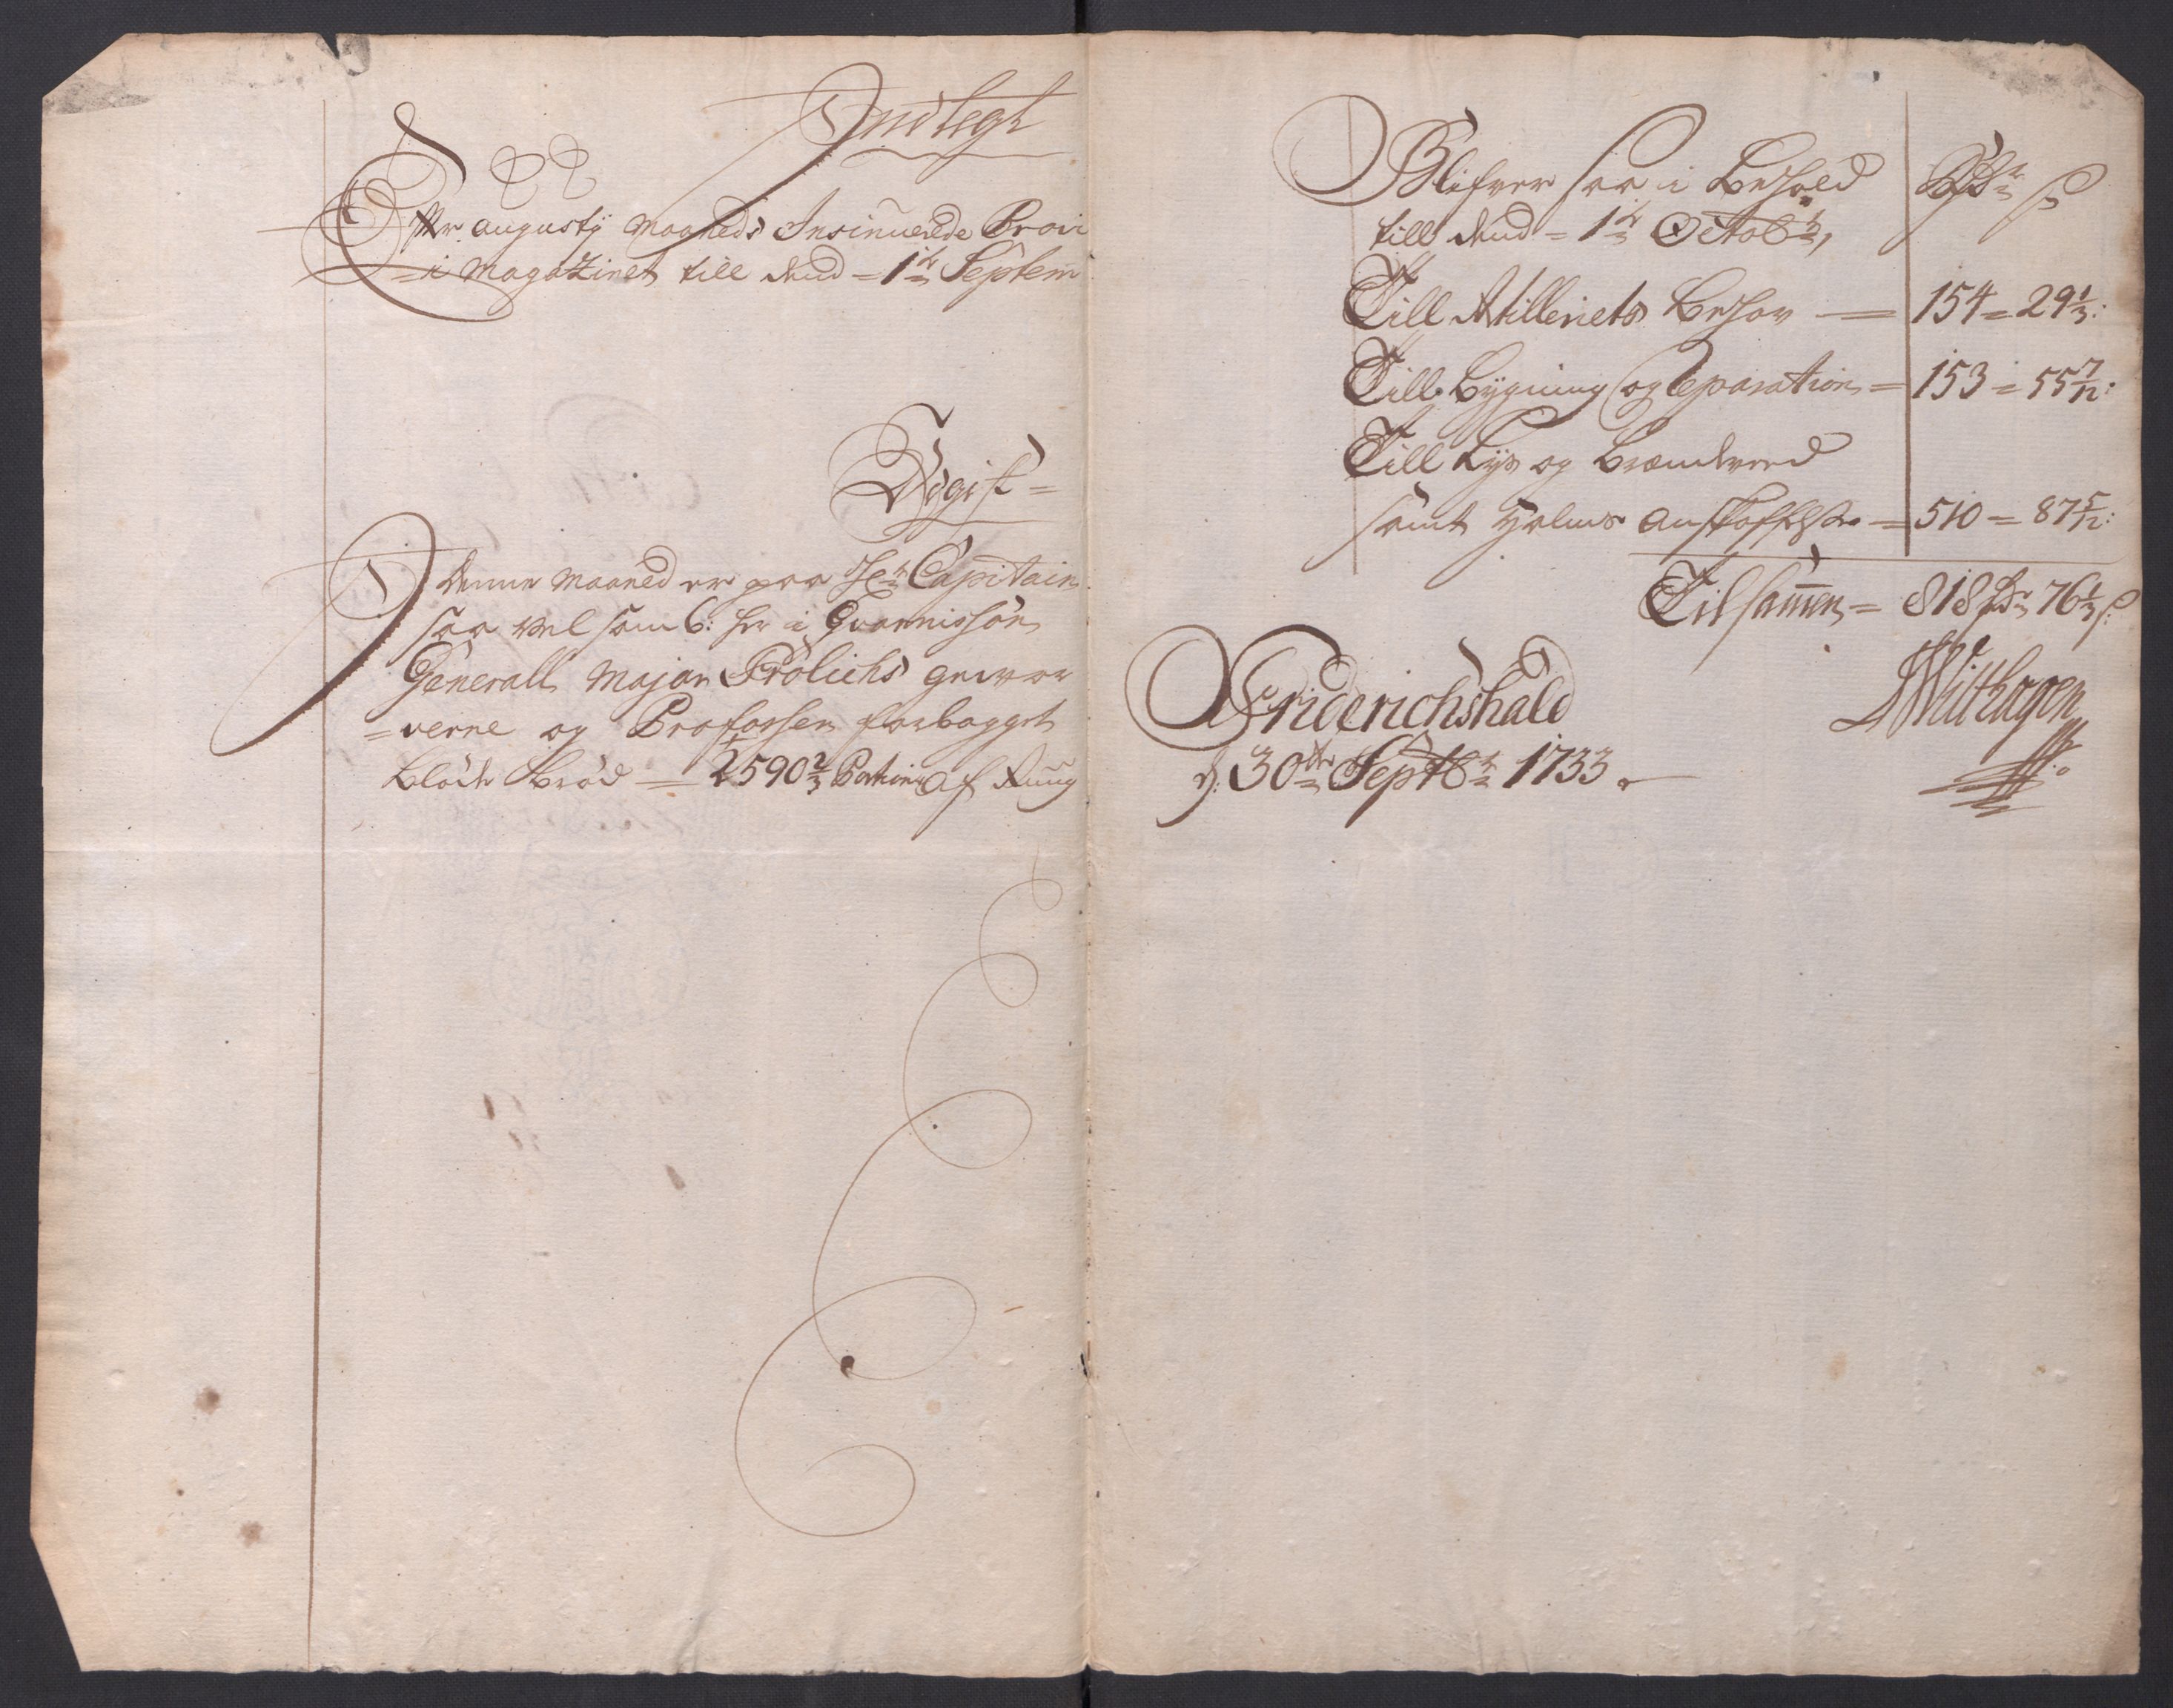 Indlegt
Efter Augusty Maaneds Insinuerede Provi
=i Magazinet till dend = 1te Septem
Udgift =
I denne Maaned er paa Hr Capitain
saa vel som 6: her i Guarnisson
Generall Major Frølichs gewor
=verne og Profossen forbagget
blødt Brød = 2590 2/3 Portioner af Ruug
Blifver saa i Behold Rdr ß
till dend = 1te Octobr,
Till Atilleriets Behov = 154 = 29 1/3:
Till Bygning og Reparation = 153 = 55 7/12:
Till Lys og Brændeveed
samt Halms Anskaffelse = 510 = 87 5/12:
Tilsamen = 818 Rdr 76 1/3 ß:
Friderichshald
d: 30te Septbr 1733.